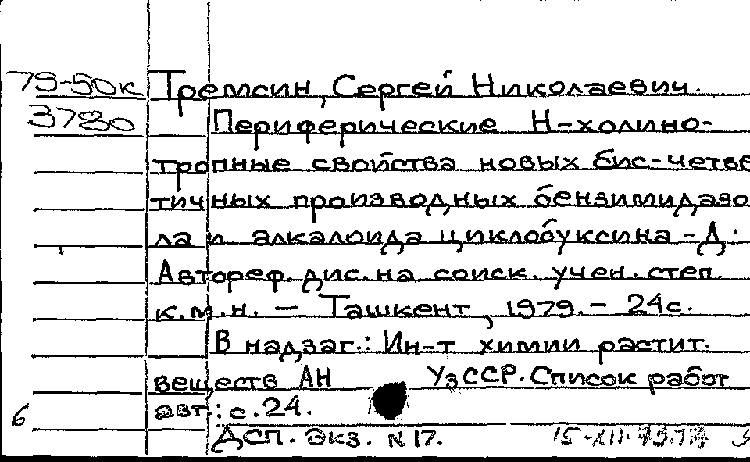 79-50к Тремсин, Сергей Николаевич.
3780 Периферические Н-холино-
тропные свойства новых бис-четве
тичных производных бензимидазо
ла и алкалоида циклобуксина-Д:
Автореф. дис. на соиск. учен. степ.
к.м.н. — Ташкент, 1979. — 24с.
В надзаг.: Ин-т химии растит.
веществ АН УзССР. Список работ
6 авт.: с.24.
ДСП. Экз. N 17.